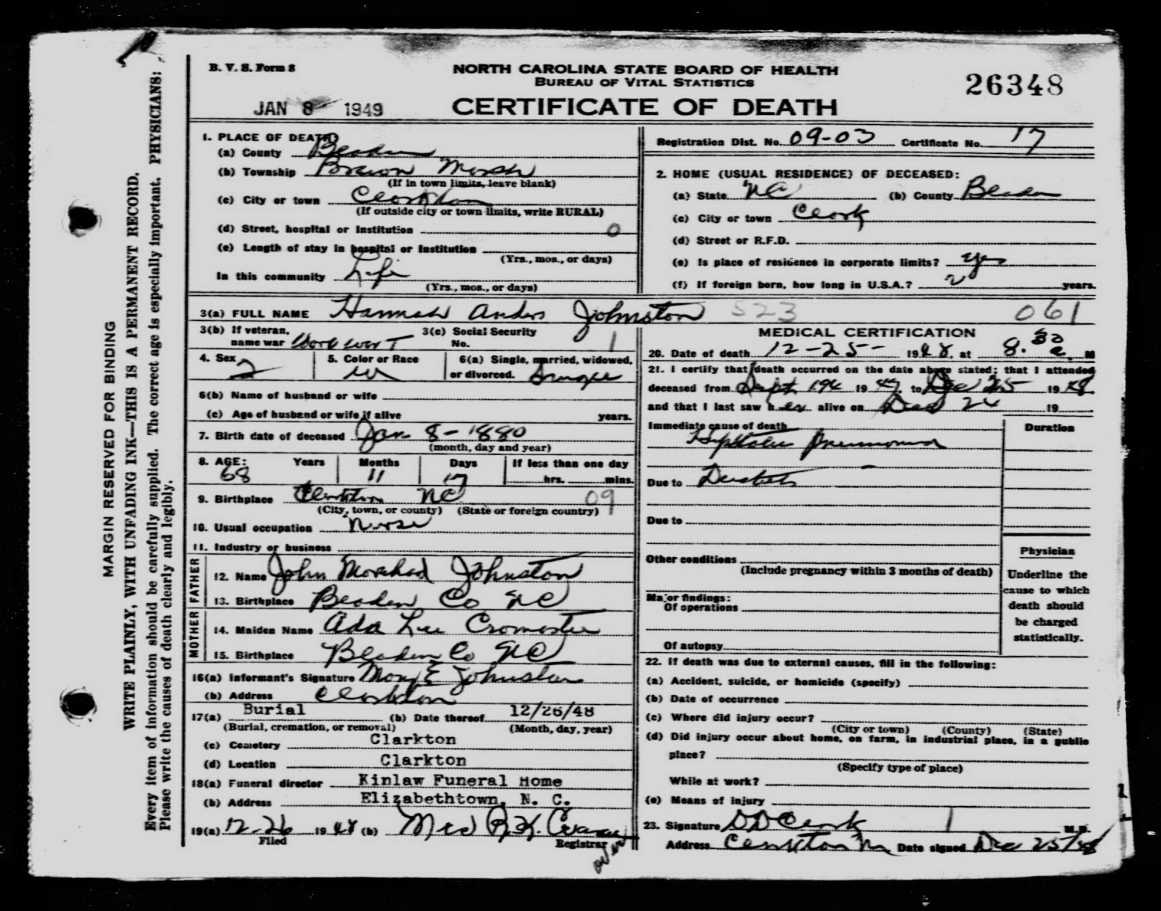 B. V. S. Form 8
NORTH CAROLINA STATE BOARD OF HEALTH
BUREAU OF VITAL STATISTICS
26348
JAN 8 1949
CERTIFICATE OF DEATH
MARGIN RESERVED FOR BINDING
WRITE PLAINLY, WITH UNFADING INK—THIS IS A PERMANENT RECORD.
Every item of information should be carefully supplied. The correct age is especially important. PHYSICIANS:
Please write the causes of death clearly and legibly.
1. PLACE OF DEATH
(a) County Bladen
(b) Township Brown Marsh
(If in town limits, leave blank)
(c) City or town Clarkton
(If outside city or town limits, write RURAL)
(d) Street, hospital or institution 0
(e) Length of stay in hospital or institution
(Yrs., mos., or days)
In this community Life
(Yrs., mos., or days)
Registration Dist. No. 09-03 Certificate No. 17
2. HOME (USUAL RESIDENCE) OF DECEASED:
(a) State NC (b) County Bladen
(c) City or town Clark
(d) Street or R.F.D.
(e) Is place of residence in corporate limits? yes
(f) If foreign born, how long in U.S.A.? years.
3(a) FULL NAME Hannah Anders Johnston 523 061
3(b) If veteran, name war World War I
3(c) Social Security No. 1
4. Sex 2
5. Color or Race W
6(a) Single, married, widowed, or divorced. Single
6(b) Name of husband or wife
(c) Age of husband or wife if alive years.
7. Birth date of deceased Jan 8-1880
(month, day and year)
8. AGE: Years Months Days If less than one day
68 11 17 hrs. mins.
9. Birthplace Clarkton NC 09
(City, town, or county) (State or foreign country)
10. Usual occupation Nurse
11. Industry or business
FATHER
12. Name John Morehead Johnston
13. Birthplace Bladen Co NC
MOTHER
14. Maiden Name Ada Lee Cromartie
15. Birthplace Bladen Co NC
16(a) Informant's Signature Mary E Johnston
(b) Address Clarkton
17(a) Burial (b) Date thereof 12/26/48
(Burial, cremation, or removal) (Month, day, year)
(c) Cemetery Clarkton
(d) Location Clarkton
18(a) Funeral director Kinlaw Funeral Home
(b) Address Elizabethtown, N. C.
19(a) 12-26 1948 (b) Mrs R. K.
Filed Registrar
over
MEDICAL CERTIFICATION
20. Date of death 12-25- 1948, at 8:30 a. M
21. I certify that death occurred on the date above stated; that I attended
deceased from Sept 1947 to Dec 25 1948
and that I last saw her alive on Dec 24 19
Immediate cause of death Duration
Hypostatic Pneumonia
Due to
Due to
Other conditions
(Include pregnancy within 3 months of death)
Major findings:
Of operations
Of autopsy
Physician
Underline the
cause to which
death should
be charged
statistically.
22. If death was due to external causes, fill in the following:
(a) Accident, suicide, or homicide (specify)
(b) Date of occurrence
(c) Where did injury occur?
(City or town) (County) (State)
(d) Did injury occur about home, on farm, in industrial place, in a public
place?
(Specify type of place)
While at work?
(e) Means of injury
23. Signature D D Clark M.D.
Address Clarkton NC Date signed Dec 25/48